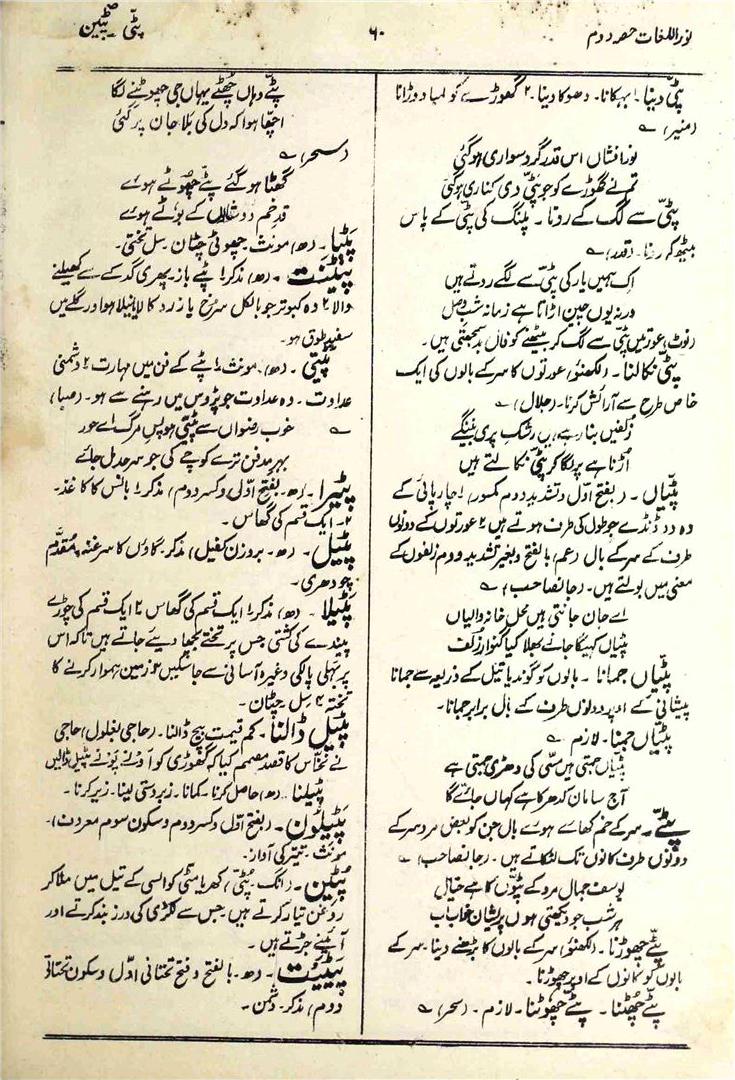 نوراللغات حصہ دوم
۶۰
پٹی ۔ پٹین
پٹی دینا۔ ۱ بہکانا۔ دھوکا دینا۔ ۲ گھوڑے کو لمبا دوڑانا
(منیر) ؎
نور افشاں اس قدر گرد سواری ہوگئی
تم نے گھوڑے کو جو پٹی دی کناری ہوگئی
پٹی سے لگ کے رونا۔ پلنگ کی پٹی کے پاس
بیٹھ کر رونا۔ (قدر) ؎
اک ہمیں یار کی پٹی سے لگے روتے ہیں
ورنہ یوں چین اڑاتا ہے زمانہ شب وصل
(نوٹ) عورتیں پٹی سے لگ کر بیٹھنے کو فال بد سمجھتی ہیں۔
پٹی نکالنا۔ (لکھنؤ) عورتوں کا سر کے بالوں کی ایک
خاص طرح سے آرائش کرنا۔ (جلال) ؎
زلفیں بنا رہے ہیں رشک پری بنینگے
اڑنا ہے پر لگا کر پٹی نکالتے ہیں
پٹیاں۔ (بفتح اول و تشدید دوم کمسور) ۱ چارپائی کے
وہ دو ڈنڈے جو طول کی طرف ہوتے ہیں ۲ عورتوں کے دونوں
طرف کے سر کے بال (عم) بالفتح و بغیر تشدید دوم زلفوں کے
معنی میں بولتے ہیں۔ (جانصاحب) ؎
اے جان جانتی ہیں محل خانہ والیاں
پٹیاں کہیگا جانے بھلا کیا گنوار زلف
پٹیاں جمانا۔ بالوں کو گوند یا تیل کے ذریعہ سے جمانا
پیشانی کے اوپر دونوں طرف کے بال برابر جمانا۔
پٹیاں جمنا۔ لازم ؎
پٹیاں جمتی ہیں مسی کی دھڑی جمتی ہے
آج سامان کدھر کا ہے کہاں جائے گا
پٹے۔ سر کے خم کھائے ہوے بال جن کو بعض مرد سر کے
دونوں طرف کانوں تک لٹکاتے ہیں۔ (جانصاحب) ؎
یوسف جمال مرد کے پٹوں کا ہے خیال
ہر شب جو دیکھتی ہوں پریشان خواب اب
پٹے چھوڑنا۔ (لکھنؤ) سر کے بالوں کا بڑھنے دینا۔ سر کے
بالوں کو کانوں کے اوپر چھوڑنا۔
پٹے چھٹنا۔ پٹے چھوٹنا۔ لازم۔ (سحر) ؎
پٹے وہاں چھٹے یہاں جی چھوٹنے لگا
اچھا ہوا کہ دل کی بلا جان پر گئی
(سحر) ؎
گھٹا ہو گئے پٹے چھوٹے ہوے
قد خم دوشالوں کے بوٹے ہوے
پٹیا۔ (ھ) مونث۔ چھوٹی چٹان۔ سل۔ تختی۔
پٹیت۔ (ھ) مذکر ۱ پٹے باز۔ پھری گدکے سے کھیلنے
والا ۲ وہ کبوتر جو بالکل سرخ یا زرد کالا یا نیلا ہو اور گلے میں
سفید طوق ہو۔
پٹیتی۔ (ھ) مونث۔ ۱ پٹے کے فن میں مہارت ۲ دشمنی
عداوت۔ وہ عداوت جو پڑوس میں رہنے سے ہو۔ (صبا)
؎ خوب رضواں سے پٹیتی ہو پس مرگ اے حور
بہر مدفن ترے کوچے کی جو سرحد مل جائے
پٹیرا۔ (ھ۔ بفتح اول و کسر دوم) مذکر ۱ بانس کا کاغذ۔
۲۔ ایک قسم کی گھاس۔
پٹیل۔ (ھ۔ بروزن کفیل) مذکر۔ گاؤں کا سرغنہ، مقدم
چودھری۔
پٹیلا۔ (ھ) مذکر ۱ ایک قسم کی گھاس ۲ ایک قسم کی چوڑے
پیندے کی کشتی جس پر تختے بچھا دیئے جاتے ہیں تاکہ اس
پر بہلی پالکی وغیرہ آسانی سے جاسکیں ۳ زمین ہموار کرنے کا
تختہ ۴ سل چٹان۔
پٹیل ڈالنا۔ کم قیمت بیچ ڈالنا۔ (حاجی بغلول) حاجی
نے نخاس کا قصد مصمم کیا کہ گھوڑی کو اونے پونے پٹیل ڈالیں
پٹیلنا۔ (ھ) حاصل کرنا۔ کمانا۔ زبردستی لینا۔ زیر کرنا۔
پٹیلون۔ (بفتح اول و کسر دوم و سکون سوم معروف)۔
مونث۔ تیتر کی آواز۔
پٹین۔ (انگ۔ پٹی) کھریا مٹی کو السی کے تیل میں ملا کر
روغن تیار کرتے ہیں جس سے لکڑی کی درز بند کرتے اور
آئینے جڑتے ہیں۔
پٹییت۔ (ھ۔ بالفتح و فتح تحتانی اول و سکون تحتانی
دوم) مذکر۔ دشمن۔